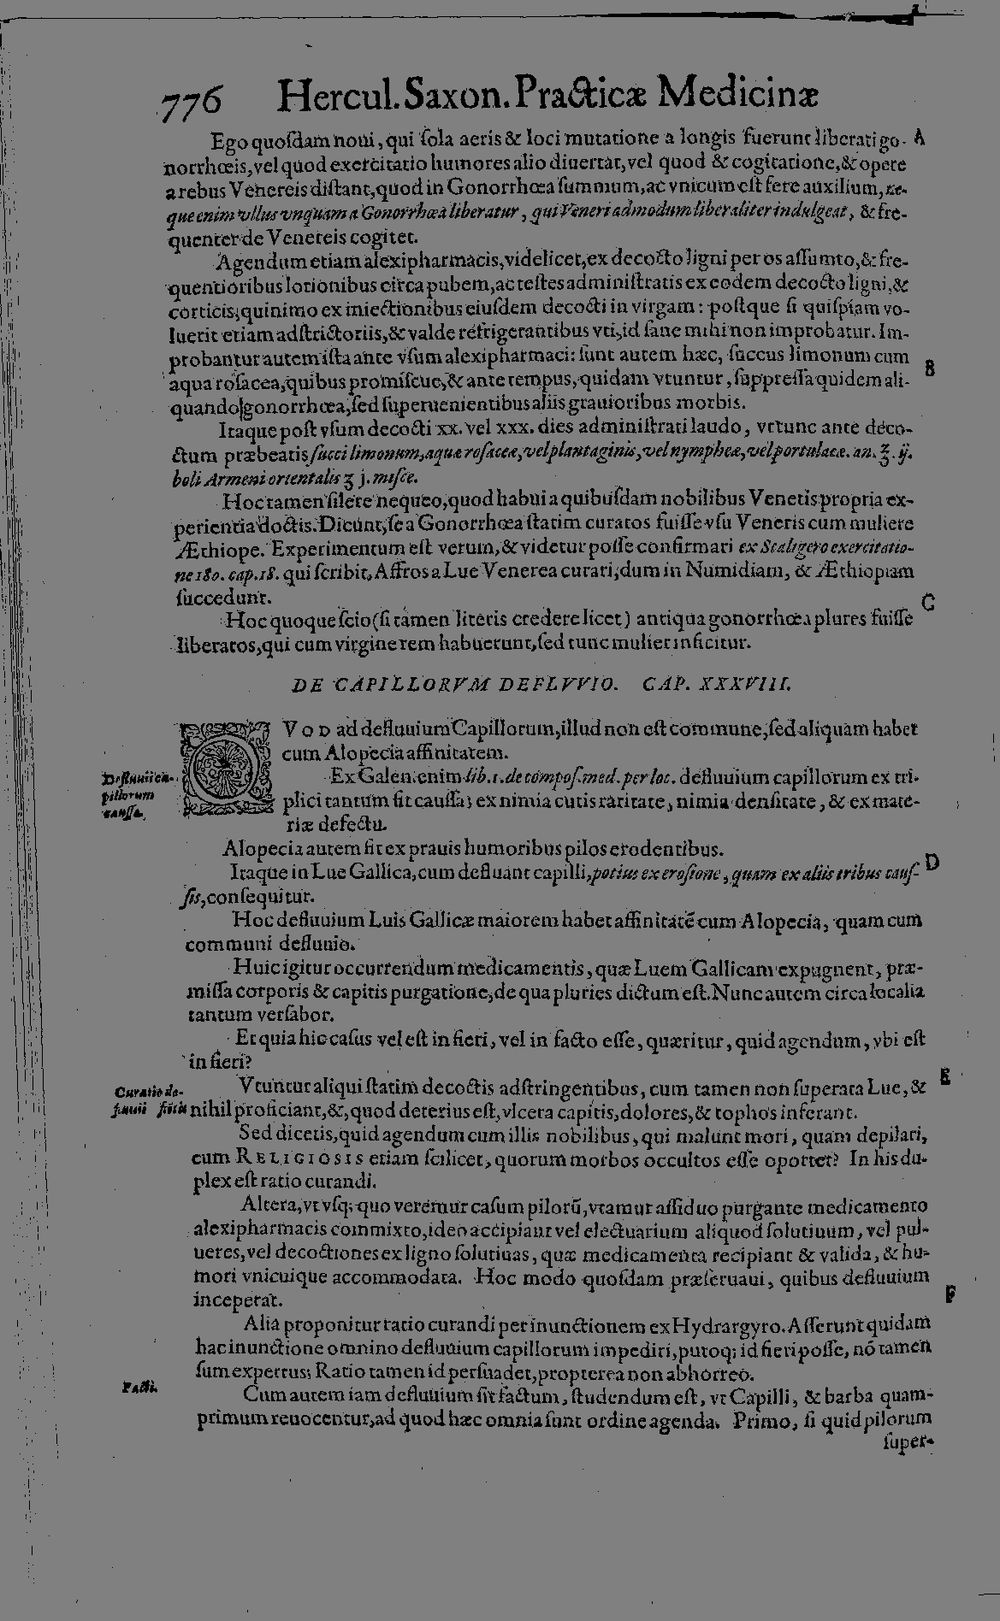 776 Hercul. Saxon. Practicæ Medicinæ
Ego quoſdam noui, qui ſola aeris & loci mutatione a longis fuerunt liberati go- A
norrhœis, vel quod exercitatio humores alio diuertat, vel quod & cogitatione, & opere
a rebus Venereis diſtant, quod in Gonorrhœa ſummum, ac vnicum eſt fere auxilium, ne-
que enim vllus vnquam a Gonorrhœa liberatur, qui Veneri admodum liberaliter indulgeat, & fre-
quenter de Venereis cogitet.
Agendum etiam alexipharmacis, videlicet, ex decocto ligni per os aſſumto, & fre-
quentioribus lotionibus circa pubem, ac teſtes adminiſtratis ex eodem decocto ligni, &
corticis, quinimo ex iniectionibus eiuſdem decocti in virgam: poſtque ſi quiſpiam vo-
luerit etiam adſtrictoriis, & valde refrigerantibus vti, id ſane mihi non improbatur. Im-
probantur autem iſta ante vſum alexipharmaci: ſunt autem hæc, ſuccus limonum cum B
aqua roſacea, quibus promiſcue, & ante tempus, quidam vtuntur, ſuppreſſa quidem ali-
quando gonorrhœa, ſed ſuperuenientibus aliis grauioribus morbis.
Itaque poſt vſum decocti xx. vel xxx. dies adminiſtrati laudo, vt tunc ante deco-
ctum præbeatis ſucci limonum, aquæ roſaceæ, vel plantaginis, vel nympheæ, vel portulacæ. an. ℥. ij.
boli Armeni orientalis ʒ j. miſce.
Hoc tamen ſilere nequeo, quod habui a quibuſdam nobilibus Venetis propria ex-
perientia doctis. Dicunt, ſe a Gonorrhœa ſtatim curatos fuiſſe vſu Veneris cum muliere
Æthiope. Experimentum eſt verum, & videtur poſſe confirmari ex Scaligero exercitatio-
ne 180. cap. 18. qui ſcribit, Affros a Lue Venerea curari, dum in Numidiam, & Æthiopiam
ſuccedunt. C
Hoc quoque ſcio (ſi tamen literis credere licet) antiqua gonorrhœa plures fuiſſe
liberatos, qui cum virgine rem habuerunt, ſed tunc mulier inficitur.
DE CAPILLORVM DEFLVVIO. CAP. XXXVIII.
QVOD ad defluuium Capillorum, illud non eſt commune, ſed aliquam habet
cum Alopecia affinitatem.
Defluuii ca- Ex Galen. enim lib. 1. de compoſ. med. per loc. defluuium capillorum ex tri-
pillorum plici tantum fit cauſſa; ex nimia cutis raritate, nimia denſitate, & ex mate-
cauſſa. riæ defectu.
Alopecia autem fit ex prauis humoribus pilos erodentibus.
Itaque in Lue Gallica, cum defluant capilli, potius ex eroſione, quam ex aliis tribus cauſ- D
ſis, conſequitur.
Hoc defluuium Luis Gallicæ maiorem habet affinitatē cum Alopecia, quam cum
communi defluuio.
Huic igitur occurrendum medicamentis, quæ Luem Gallicam expugnent, præ-
miſſa corporis & capitis purgatione, de qua pluries dictum eſt. Nunc autem circa localia
tantum verſabor.
Et quia hic caſus vel eſt in fieri, vel in facto eſſe, quæritur, quid agendum, vbi eſt
in fieri? E
Curatio de- Vtuntur aliqui ſtatim decoctis adſtringentibus, cum tamen non ſuperata Lue, &
fluuii nihil proficiant, &, quod deterius eſt, vlcera capitis, dolores, & tophos inferant.
Sed dicetis, quid agendum cum illis nobilibus, qui malunt mori, quam depilari,
cum RELIGIOSIS etiam ſcilicet, quorum morbos occultos eſſe oportet? In his du-
plex eſt ratio curandi.
Altera, vt vſq; quo veremur caſum pilorū, vtamur aſſiduo purgante medicamento
alexipharmacis commixto, ideo accipiant vel electuarium aliquod ſolutiuum, vel pul-
ueres, vel decoctiones ex ligno ſolutiuas, quæ medicamenta recipiant & valida, & hu-
mori vnicuique accommodata. Hoc modo quoſdam præſeruaui, quibus defluuium
inceperat. F
Alia proponitur ratio curandi per inunctionem ex Hydrargyro. Aſſerunt quidam
hac inunctione omnino defluuium capillorum impediri, puto q; id fieri poſſe, nō tamen
ſum expertus; Ratio tamen id perſuadet, propterea non abhorreo.
Facti. Cum autem iam defluuium ſit factum, ſtudendum eſt, vt Capilli, & barba quam-
primum reuocentur, ad quod hæc omnia ſunt ordine agenda. Primo, ſi quid pilorum
ſuper-